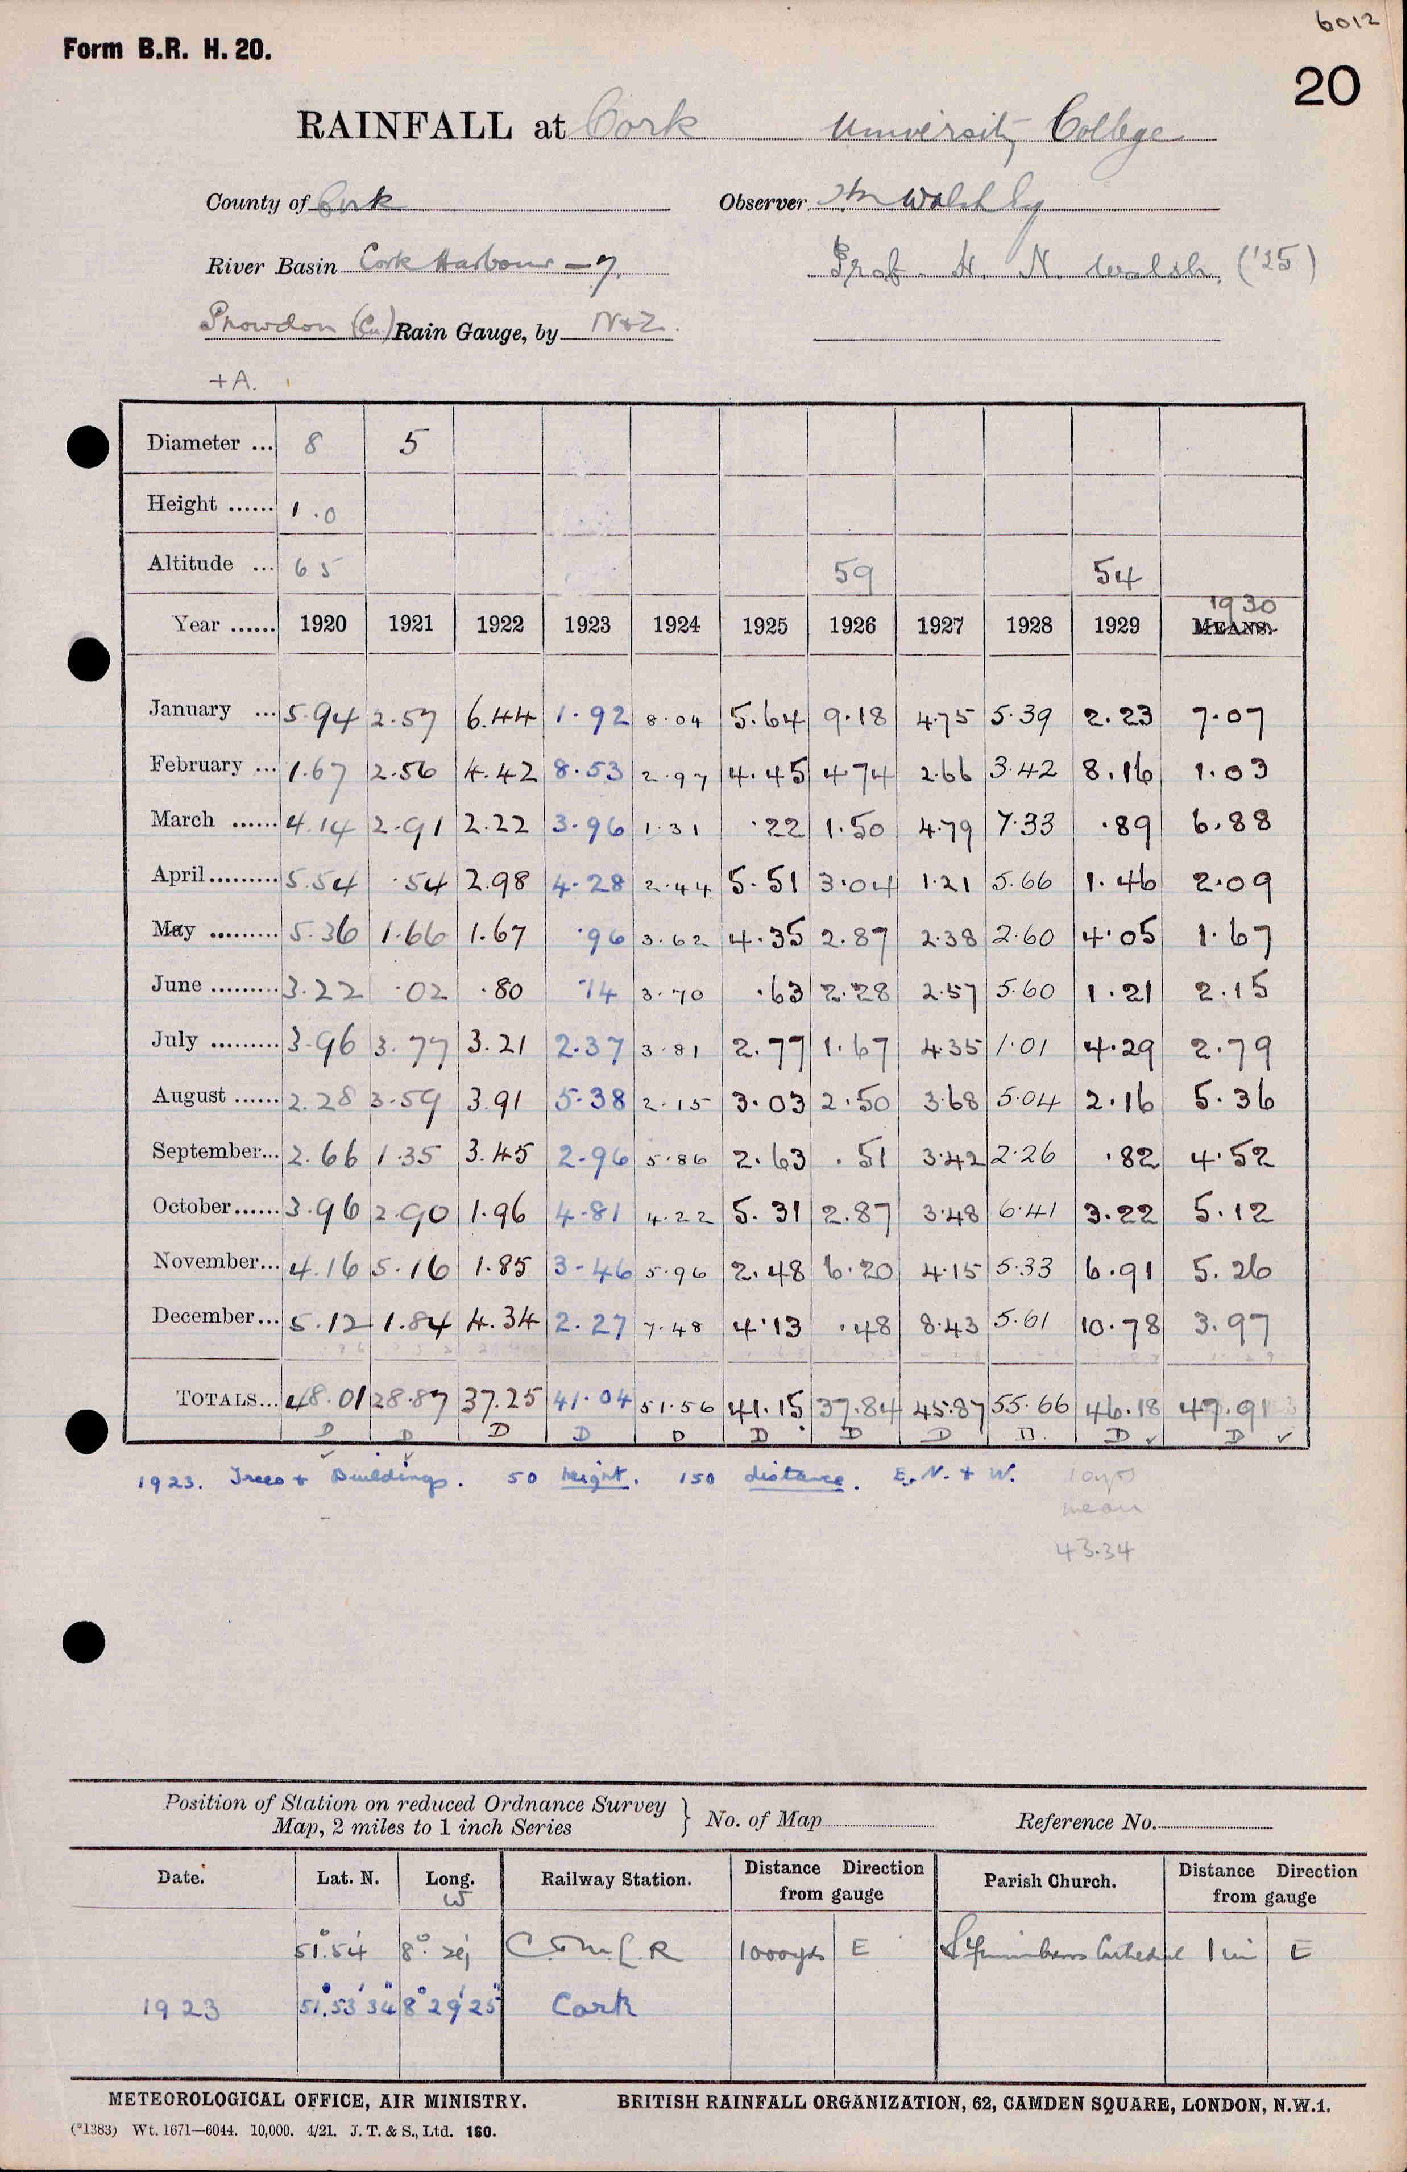 6012
Form B.R. H. 20.
20
RAINFALL at Cork University College
County of Cork Observer Walsh Esq
River Basin Cork Harbour - 7. Prof. H. N. Walsh. ('25)
Snowdon (Cu) Rain Gauge, by N+Z.
+A.
Diameter ... 8 5
Height ...... 1.0
Altitude ... 65 59 54
1930
Year ...... 1920 1921 1922 1923 1924 1925 1926 1927 1928 1929 MEANS.
January ... 5.94 2.57 6.44 1.92 8.04 5.64 9.18 4.75 5.39 2.23 7.07
February ... 1.67 2.56 4.42 8.53 2.97 4.45 4.74 2.66 3.42 8.16 1.03
March ...... 4.14 2.91 2.22 3.96 1.31 .22 1.50 4.79 7.33 .89 6.88
April......... 5.54 .54 2.98 4.28 2.44 5.51 3.04 1.21 5.66 1.46 2.09
May ......... 5.36 1.66 1.67 .96 3.62 4.35 2.87 2.38 2.60 4.05 1.67
June ......... 3.22 .02 .80 .14 3.70 .63 2.28 2.57 5.60 1.21 2.15
July ......... 3.96 3.77 3.21 2.37 3.81 2.77 1.67 4.35 1.01 4.29 2.79
August ...... 2.28 3.59 3.91 5.38 2.15 3.03 2.50 3.68 5.04 2.16 5.36
September... 2.66 1.35 3.45 2.96 5.86 2.63 .51 3.42 2.26 .82 4.52
October...... 3.96 2.90 1.96 4.81 4.22 5.31 2.87 3.48 6.41 3.22 5.12
November... 4.16 5.16 1.85 3.46 5.96 2.48 6.20 4.15 5.33 6.91 5.26
December... 5.12 1.84 4.34 2.27 7.48 4.13 .48 8.43 5.61 10.78 3.97
TOTALS... 48.01 28.87 37.25 41.04 51.56 41.15 37.84 45.87 55.66 46.18 47.91
D D D D D D D D D. D ✓ D ✓
1923. Trees + Buildings. 50 height. 150 distance. E. N. + W.
10 yrs
mean
43.34
Position of Station on reduced Ordnance Survey
Map, 2 miles to 1 inch Series } No. of Map Reference No.
Date. Lat. N. Long. W Railway Station. Distance Direction from gauge Parish Church. Distance Direction from gauge
51°.54' 8°. 29' R 1000 yds E Cathedral 1 mi E
1923 51°.53'34" 8°29'25" Cork
METEOROLOGICAL OFFICE, AIR MINISTRY. BRITISH RAINFALL ORGANIZATION, 62, CAMDEN SQUARE, LONDON, N.W.1.
(*1383) Wt. 1671—6044. 10,000. 4/21. J. T. & S., Ltd. 160.